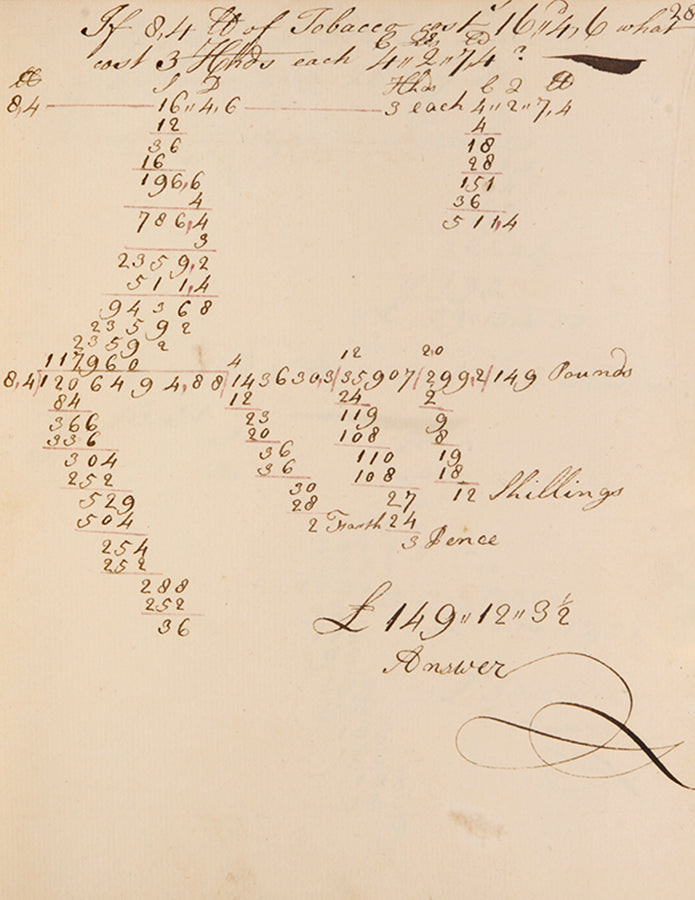 28
If 8,4 lb of Tobacco cost 16"4,6 what
cost 3 Hhds each 4"2"7,4 ?
lb S D Hhds C Q lb
8,4 16"4,6 3 each 4"2"7,4
12 4
36 18
16 28
196,6 151
4 36
786,4 511,4
3
2359,2
511,4
94368
23592
23592
117960 4 12 20
8,4/120 6494,88/1436303,3/35907/299,2/149 Pounds
84 12 24 2
366 23 119 9
336 20 108 8
304 36 110 19
252 36 108 18
529 30 27 12 Shillings
504 28 24
254 2 Farth 3 Pence
252
288
252
36
£ 149"12"3½
Answer